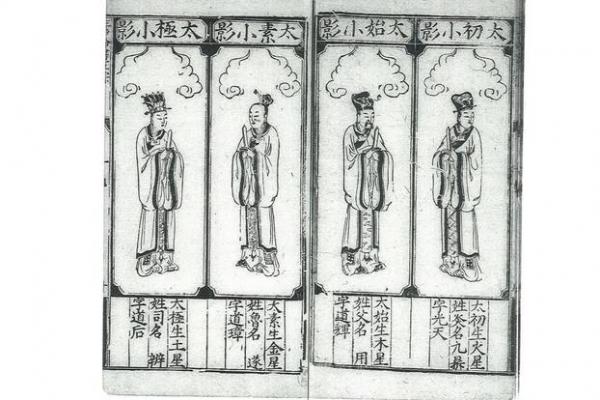 太初小影
太初生火星
姓 名九
字光天
太始小影
太始生木星
姓父名 用
字道輝
太素小影
太素生金星
姓魯名 遂
字道璋
太極小影
太極生土星
姓司名 辨
字道后